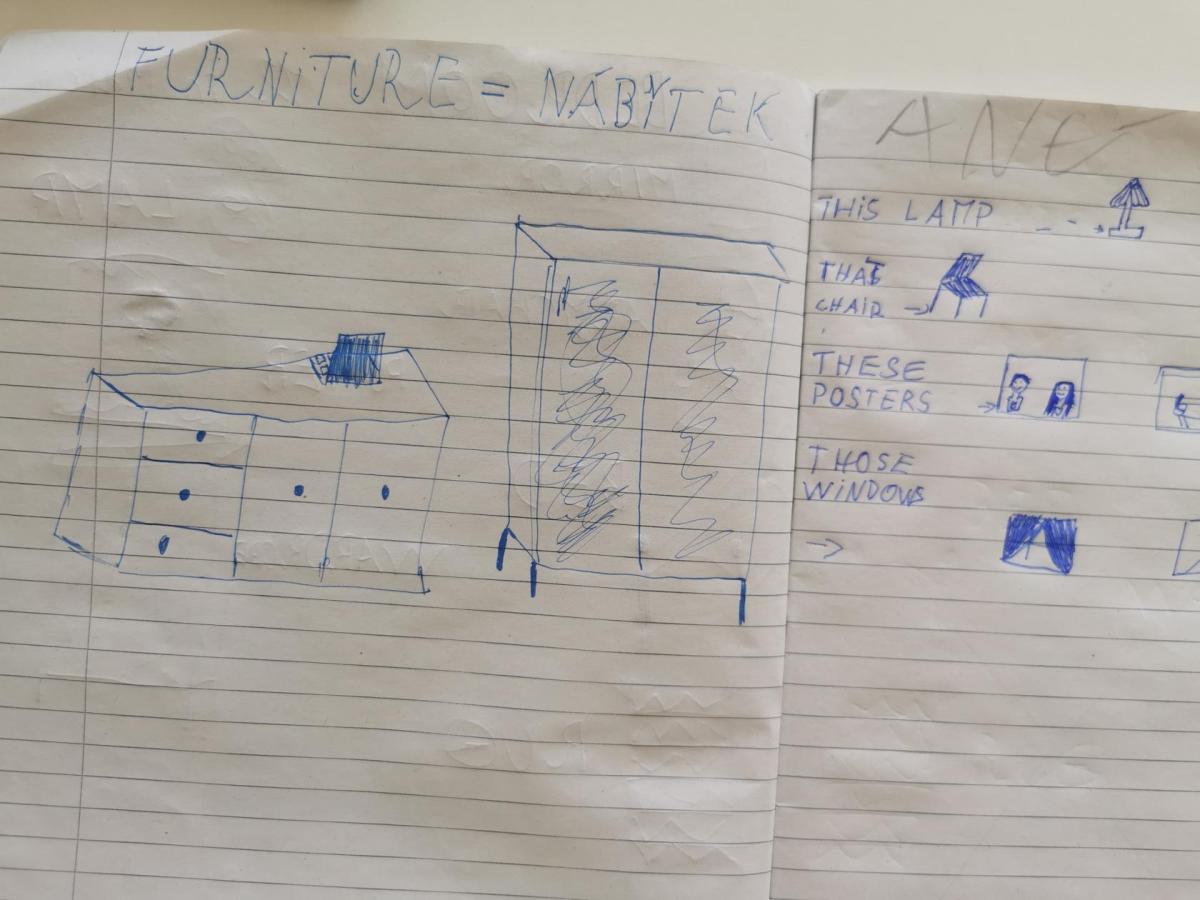 FURNiTURE = NÁBYTEK
THiS LAMP
THAT
CHAIR →
THESE
POSTERS →
THOSE
WiNDOWS
→